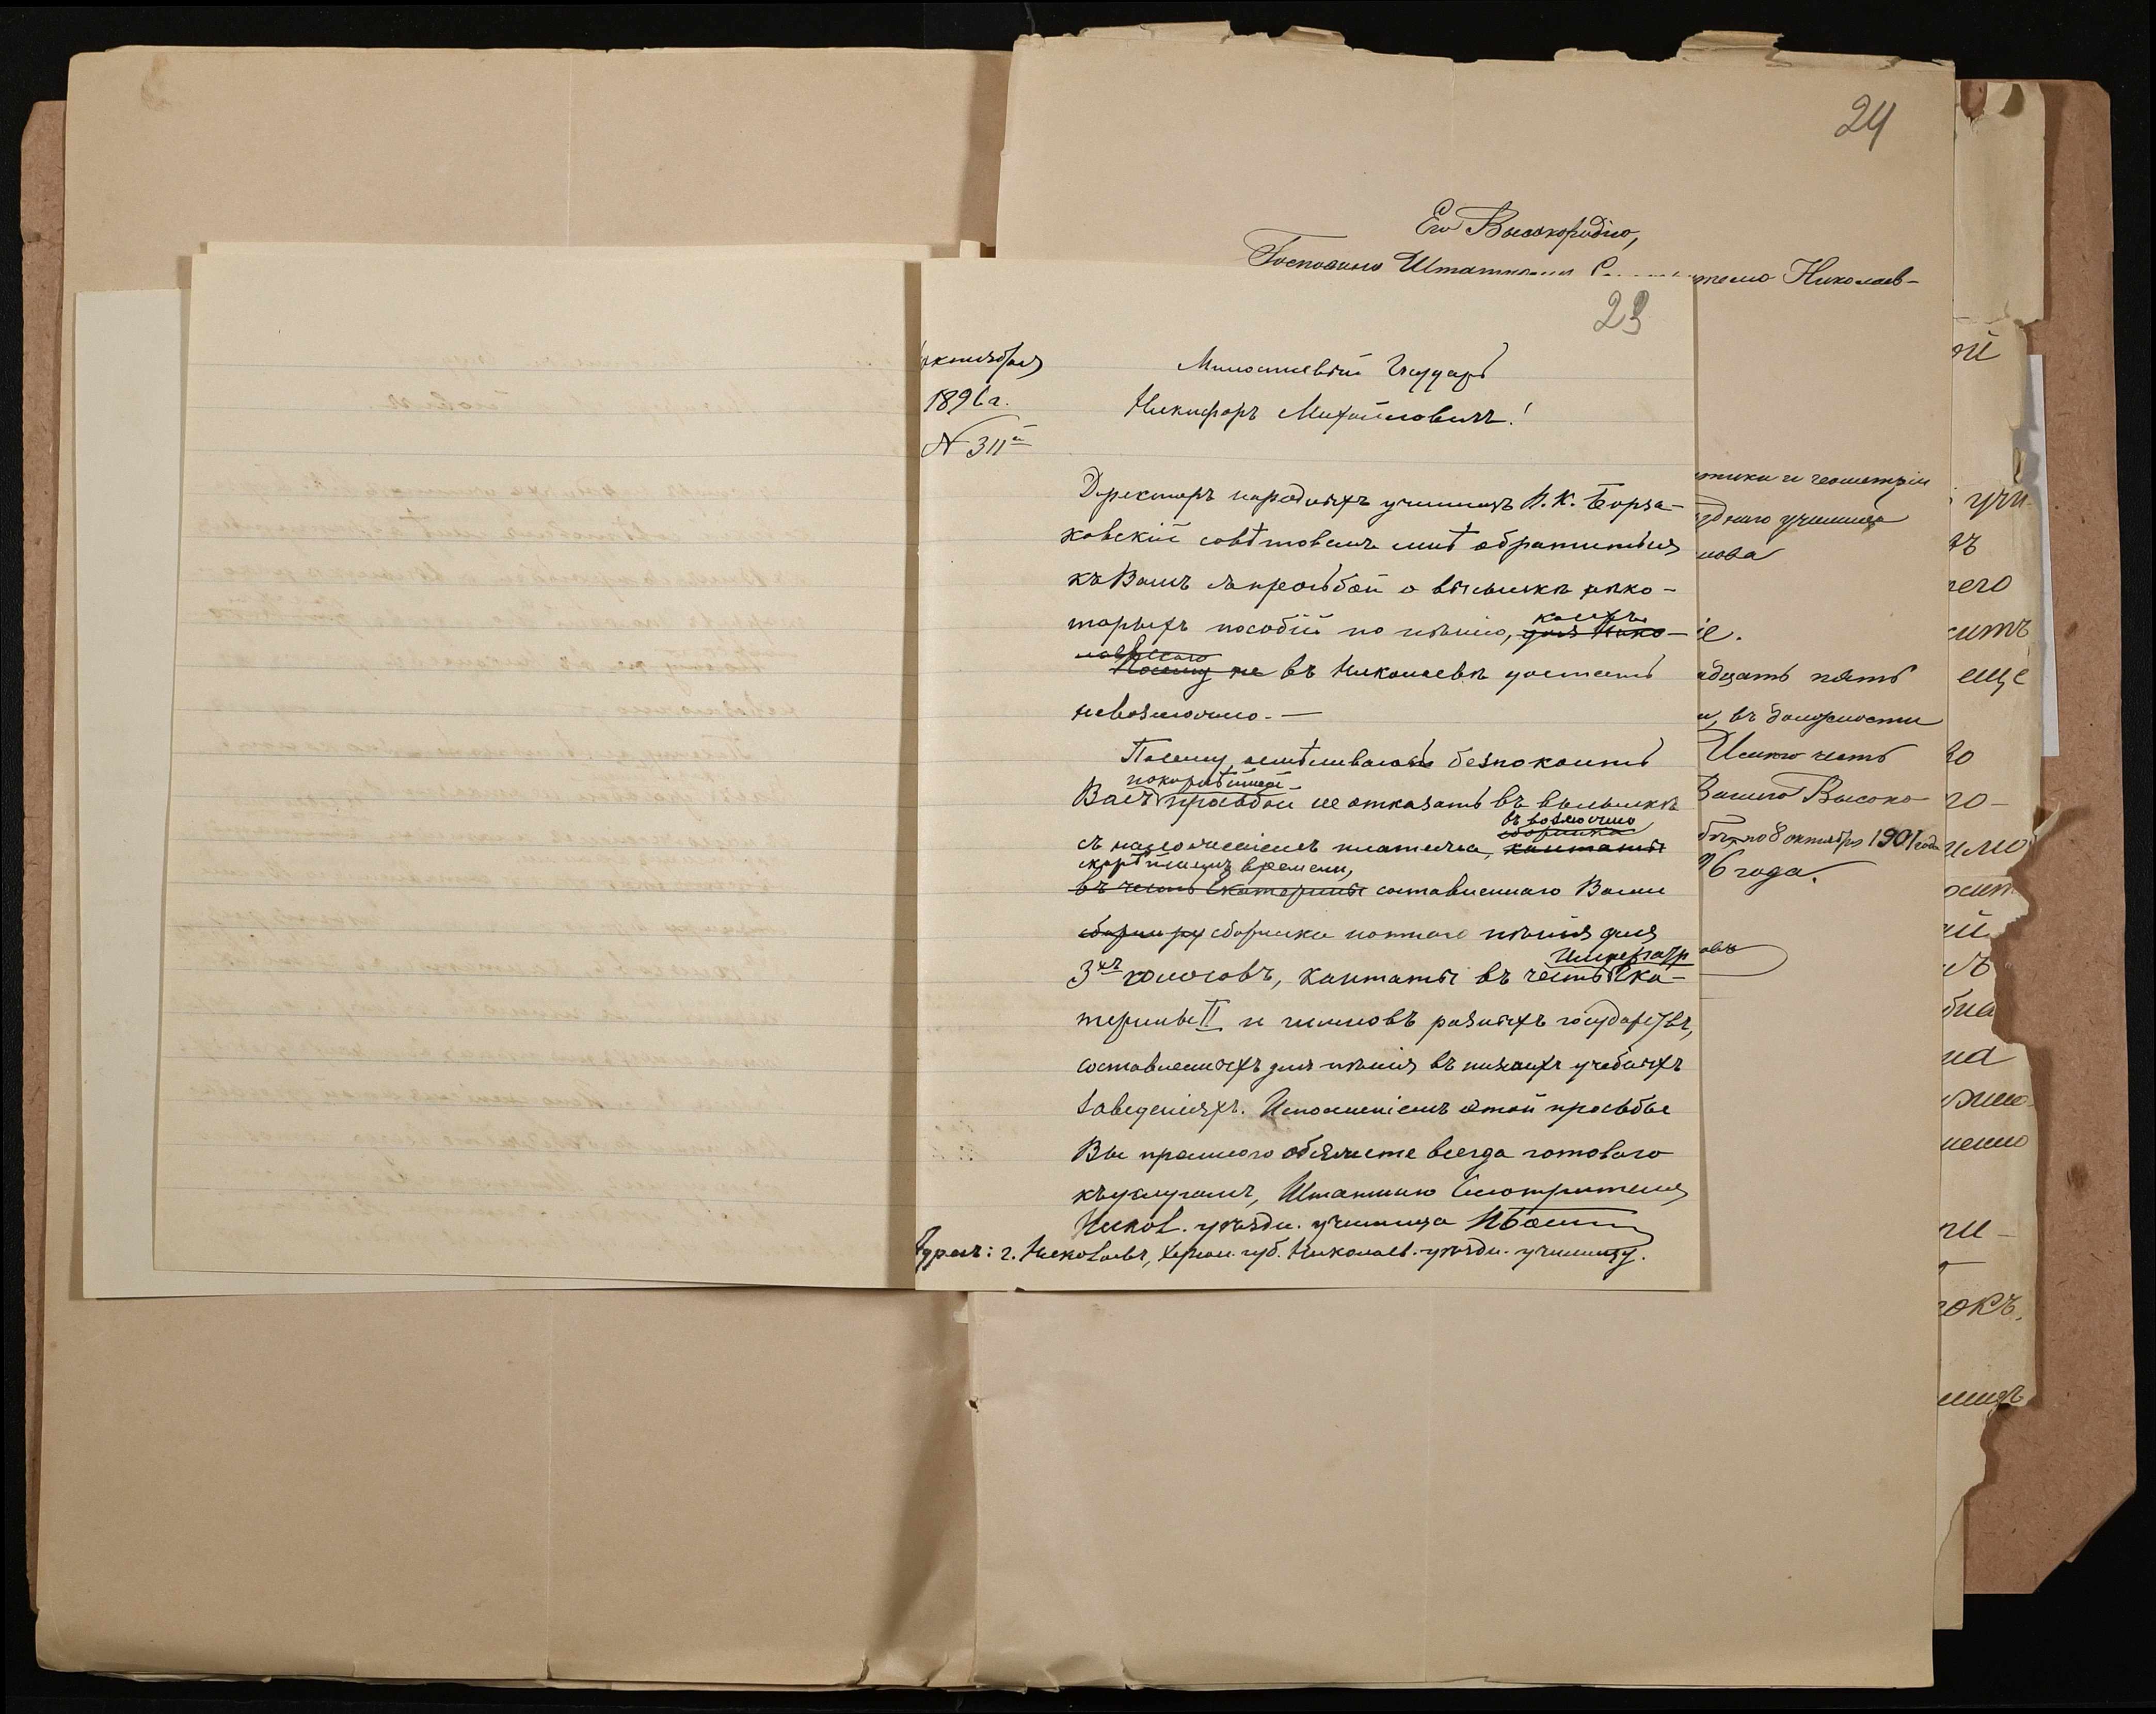 24
Его Высокородію,
Господину Штатному
телю Николаев-
23
октября
1896 г.
№ 311й
Милостивый Государь
Никифоръ Михайловичъ!
Директоръ народныхъ училищъ Н. К. Борза-
ковскій совѣтовалъ мнѣ обратиться
къ Вамъ съ просьбой о высылкѣ нѣко-
торыхъ пособій по пѣнію, коихъ для Нико-
лаевскаго
Посему не въ Николаевѣ достать
невозможно. —
Посему осмѣливаюсь безпокоить
покорнѣйшей
Васъ просьбой не отказать въ высылкѣ
въ возможно
сборника
съ наложеніемъ платежа, кантаты
скорѣйшемъ времени,
въ честь Екатерины составленнаго Вами
сборника нотнаго пѣнія для
3хъ голосовъ, кантаты въ честь Императр Ека-
терины II и гимновъ разныхъ государствъ,
составленныхъ для пѣнія въ низшихъ учебныхъ
заведеніяхъ. Исполненіемъ этой просьбы
Вы премного обяжете всегда готоваго
къ услугамъ, Штатнаго Смотрителя
Никол. уѣздн. училища
Адресъ: г. Николаевъ, Херсон. губ. Николаев. уѣздн. училищу.
тики и геометріи
зднаго училища
нова
іе.
адцать пять
и, въ должности
Имѣю честь
Вашего Высоко
по 8 октября 1901 года
96 года.
овъ
ій
учи-
въ
чего
житъ
еще
во
го-
имо
на
нено
ри-
рокъ,